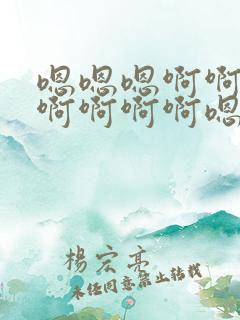 嗯嗯嗯啊啊
啊啊啊啊嗯
楊宏亮
未经同意禁止转载